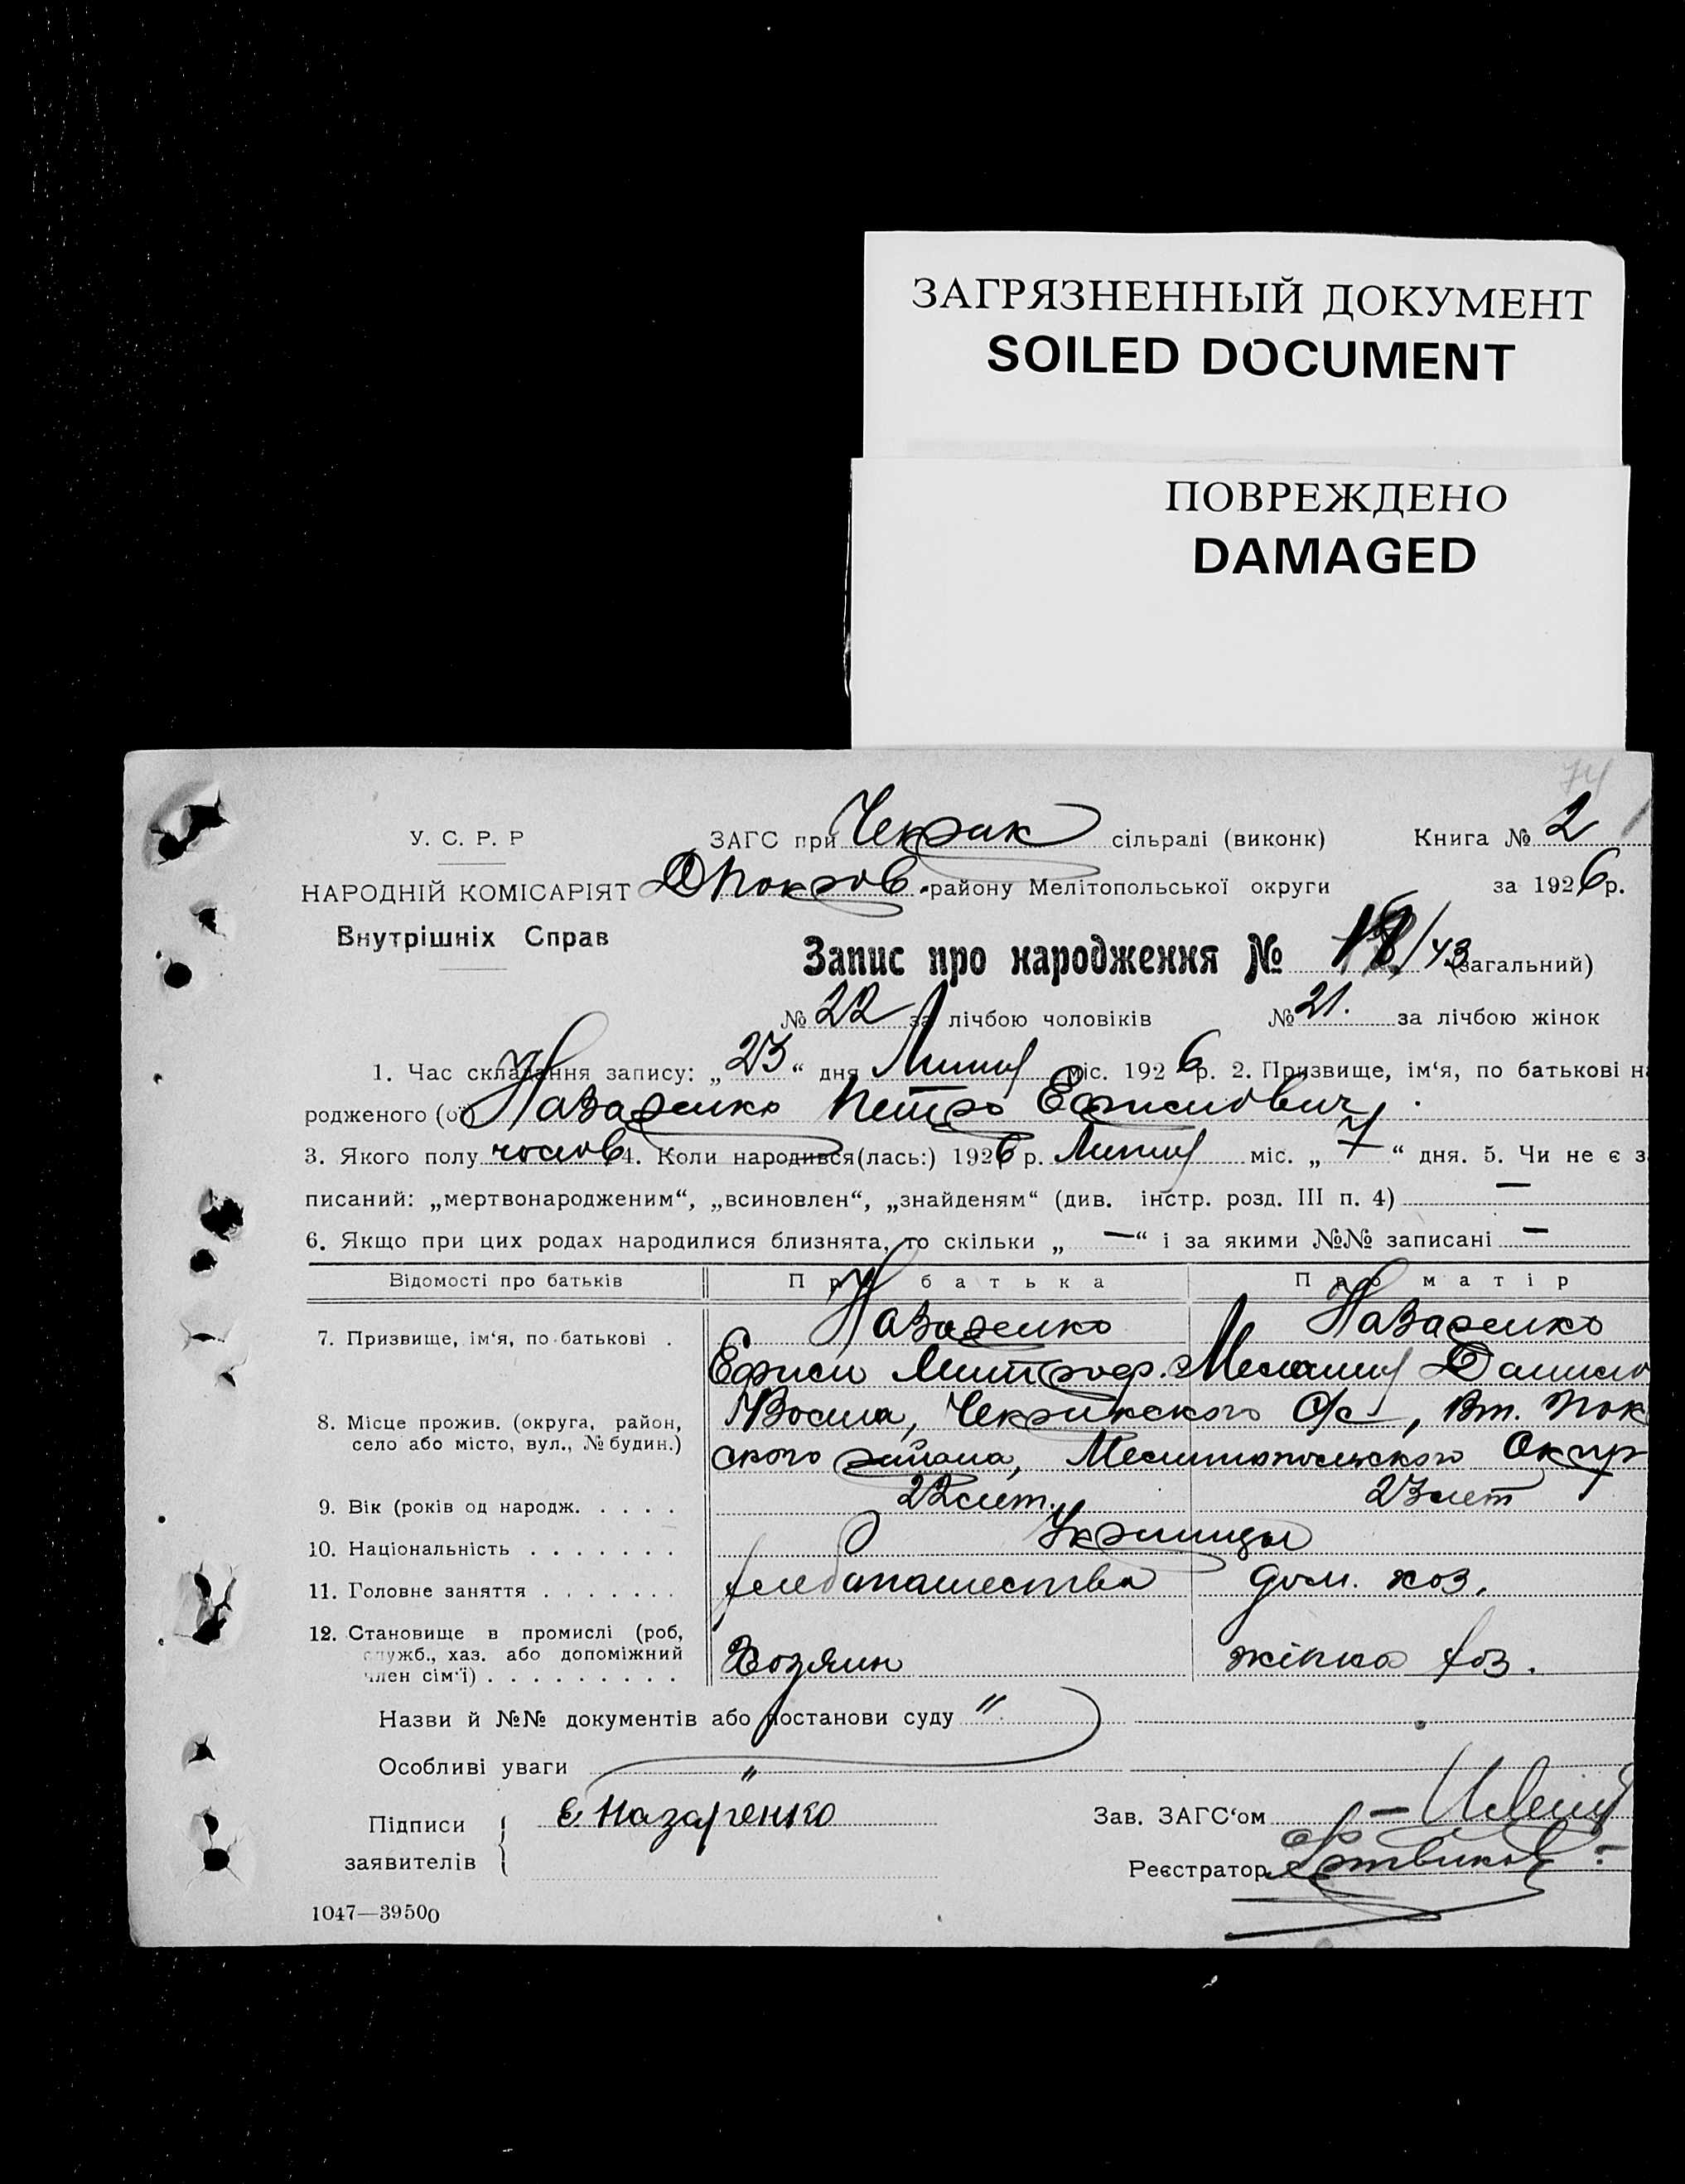 ЗАГРЯЗНЕННЫЙ ДОКУМЕНТ
SOILED DOCUMENT
ПОВРЕЖДЕНО
DAMAGED
74
У. С. Р. Р ЗАГС при Чекрак сільраді (виконк) Книга № 2
НАРОДНІЙ КОМІСАРІЯТ Покров. району Мелітопольської округи за 1926 р.
Внутрішніх Справ
Запис про народження № /43 (загальний)
№ 22 за лічбою чоловіків № 21. за лічбою жінок
1. Час складання запису: „23“ дня Липня міс. 1926 р. 2. Призвище, ім‘я, по батькові на
родженого (ої) Назаренко Петро Ефимович.
3. Якого полу чолов 4. Коли народився(лась:) 1926 р. Липня міс. „7“ дня. 5. Чи не є з
писаний: „мертвонародженим“, „всиновлен“, „знайденям“ (див. інстр. розд. III п. 4) —
6. Якщо при цих родах народилися близнята, то скільки „—“ і за якими №№ записані —
Відомості про батьків Про батька Про матір
7. Призвище, ім‘я, по батькові . Назаренко Назаренко
Ефим Митроф. Мелания Данило
8. Місце прожив. (округа, район, Чекракского С/с, Вт. Пок
село або місто, вул., № будин.) ского района, Мелитопольского Окр
9. Вік (років од народж. . . . . 22 лет. 23 лет
10. Національність . . . . . . . Украинцы
11. Головне заняття . . . . . . . хлебопашества дом. хоз.
12. Становище в промислі (роб,
служб., хаз. або допоміжний Хозяин жінка хоз.
член сім‘ї) . . . . . . . . .
Назви й №№ документів або постанови суду "
Особливі уваги "
Підписи Е Назаренко Зав. ЗАГС‘ом
заявителів Реєстратор
1047—39500